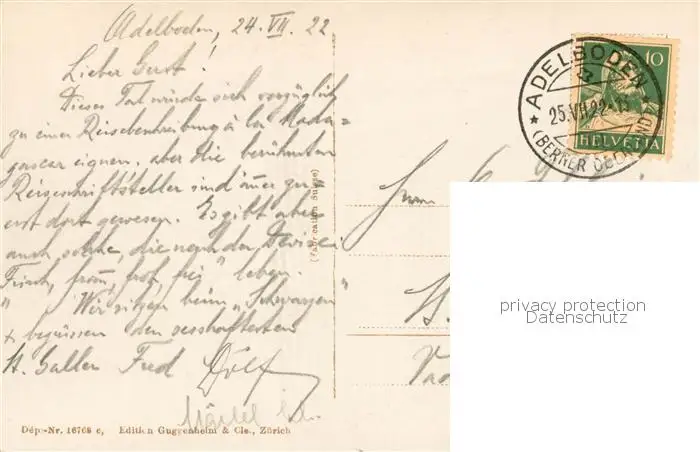 Adelboden, 24. VII. 22
Lieber Gerst!
Dieses Tal würde sich vorzüglich
zu einer Reisebeschreibung à la Mada-
gascar eignen. aber die berühmten
Reiseschriftsteller sind immer zu-
erst dort gewesen. Es gibt aber
auch solche, die nach der Devise:
"Frisch, fromm, froh, frei" leben.
Wir sitzen beim "Schwarzen"
+ begrüssen den sesshaftesten
St. Galler Fred Dölf
Dép.-Nr. 16768 c, Edition Guggenheim & Cie., Zürich
(Fabrication Suisse)
10
HELVETIA
ADELBODEN
25.VII.22
(BERNER OBERLAND)
Herrn
St.
privacy protection
Datenschutz